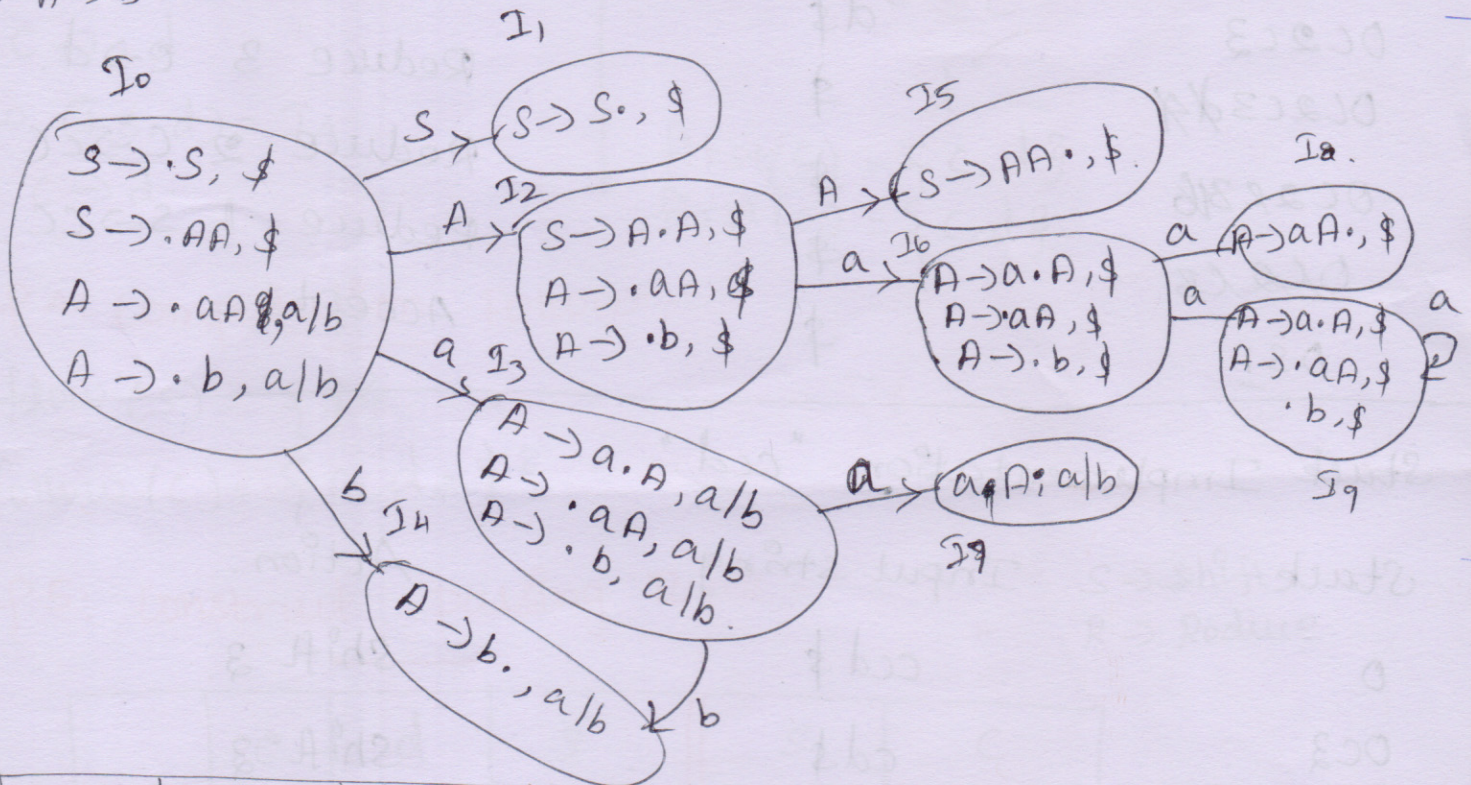 I0
S → ·S, $
S → ·AA, $
A → ·aA, a/b
A → ·b, a/b
S
I1
S → S·, $
A
I2
S → A·A, $
A → ·aA, $
A → ·b, $
A
I5
S → AA·, $
a
I6
A → a·A, $
A → ·aA, $
A → ·b, $
a
I8
A → aA·, $
a
A → a·A, $
A → ·aA, $
·b, $
a
I9
a
I3
A → a·A, a/b
A → ·aA, a/b
A → ·b, a/b
a
aA·, a/b
b
I4
A → b·, a/b
b